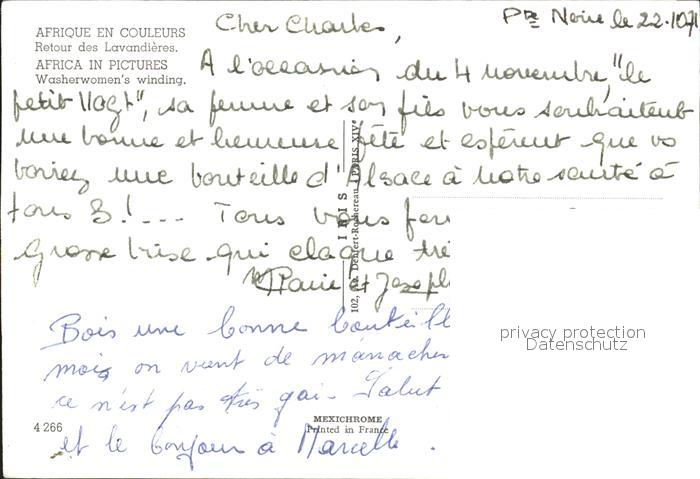 AFRIQUE EN COULEURS
Retour des Lavandières.
AFRICA IN PICTURES
Washerwomen's winding.
Pte Noire le 22.10.71
Cher Charles,
A l'occasion du 4 novembre, "le
petit Vogt", sa femme et son fils vous souhaitent
une bonne et heureuse fête et espèrent que vo
boirez une bouteille d'Alsace à notre santé à
tous 3!... Tous vous
Grosse bise qui claque
Marie + Joseph
Bois une bonne bouteill
mois on vient de
ce n'est pas très gai. Salut
et le bonjour à Marcelle.
IRIS
102, Av. Denfert-Rochereau PARIS XIVe
4 266
MEXICHROME
Printed in France
privacy protection
Datenschutz